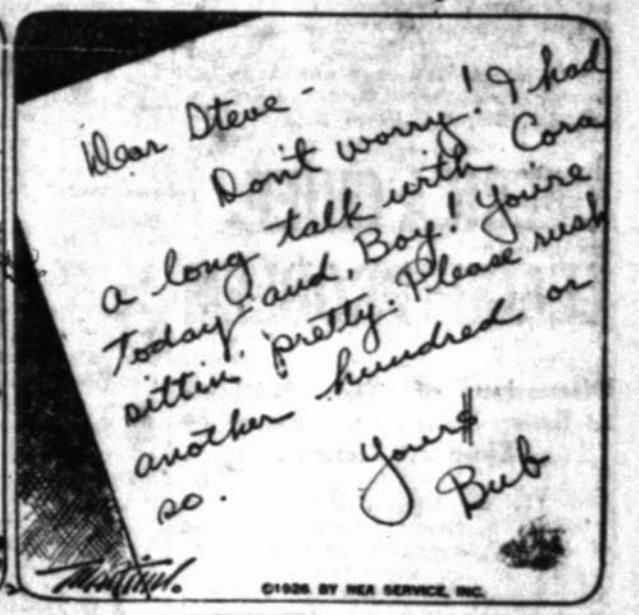 Dear Steve -
Don't worry! I had
a long talk with Cora
Today and, Boy! You're
sittin' pretty. Please rush
another hundred or
so.
Your$
Bub
©1926 BY NEA SERVICE, INC.